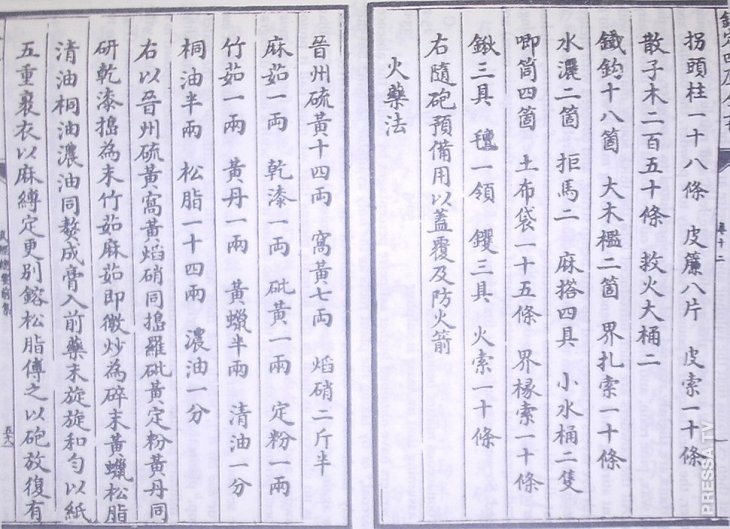 卷十二
拐頭柱一十八條 皮簾八片 皮索一十條
散子木二百五十條 救火大桶二
鐵鈎十八箇 大木檻二箇 界扎索一十條
水灑二箇 拒馬二 麻搭四具 小水桶二隻
唧筒四箇 土布袋一十五條 界椽索一十條
鍬三具 氊一領 钁三具 火索一十條
右隨砲預備用以蓋覆及防火箭
火藥法
晉州硫黃十四兩 窩黃七兩 焰硝二斤半
麻茹一兩 乾漆一兩 砒黃一兩 定粉一兩
竹茹一兩 黃丹一兩 黃蠟半兩 清油一分
桐油半兩 松脂一十四兩 濃油一分
右以晉州硫黃窩黃焰硝同搗羅砒黃定粉黃丹同
研乾漆搗為末竹茹麻茹即微炒為碎末黃蠟松脂
清油桐油濃油同熬成膏入前藥末旋旋和勻以紙
五重裹衣以麻縛定更別鎔松脂傅之以砲放復有
PRESSA TV